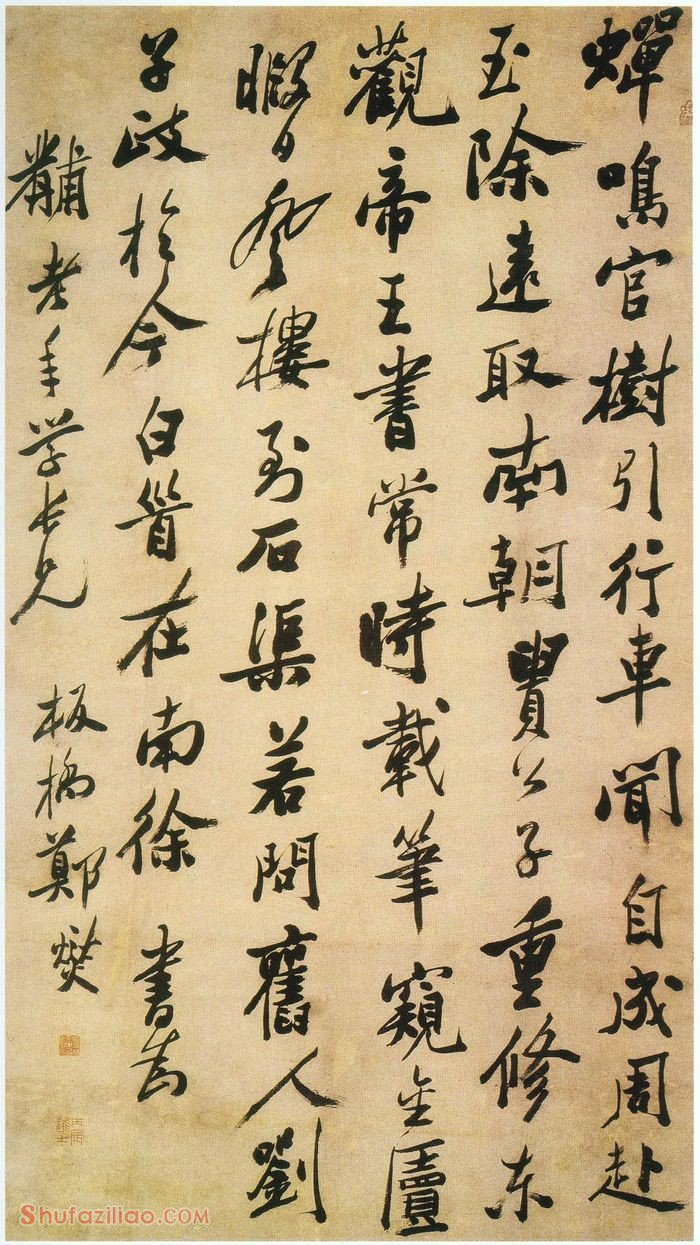 蟬鳴官樹引行車聞自成周赴
玉除遠取南朝貴公子重修东
觀帝王書常時載筆窺金匱
暇日登樓到石渠若問舊人劉
子政於今白首在南徐 書为
黼老年学长兄 板橋鄭燮
Shufaziliao.COM